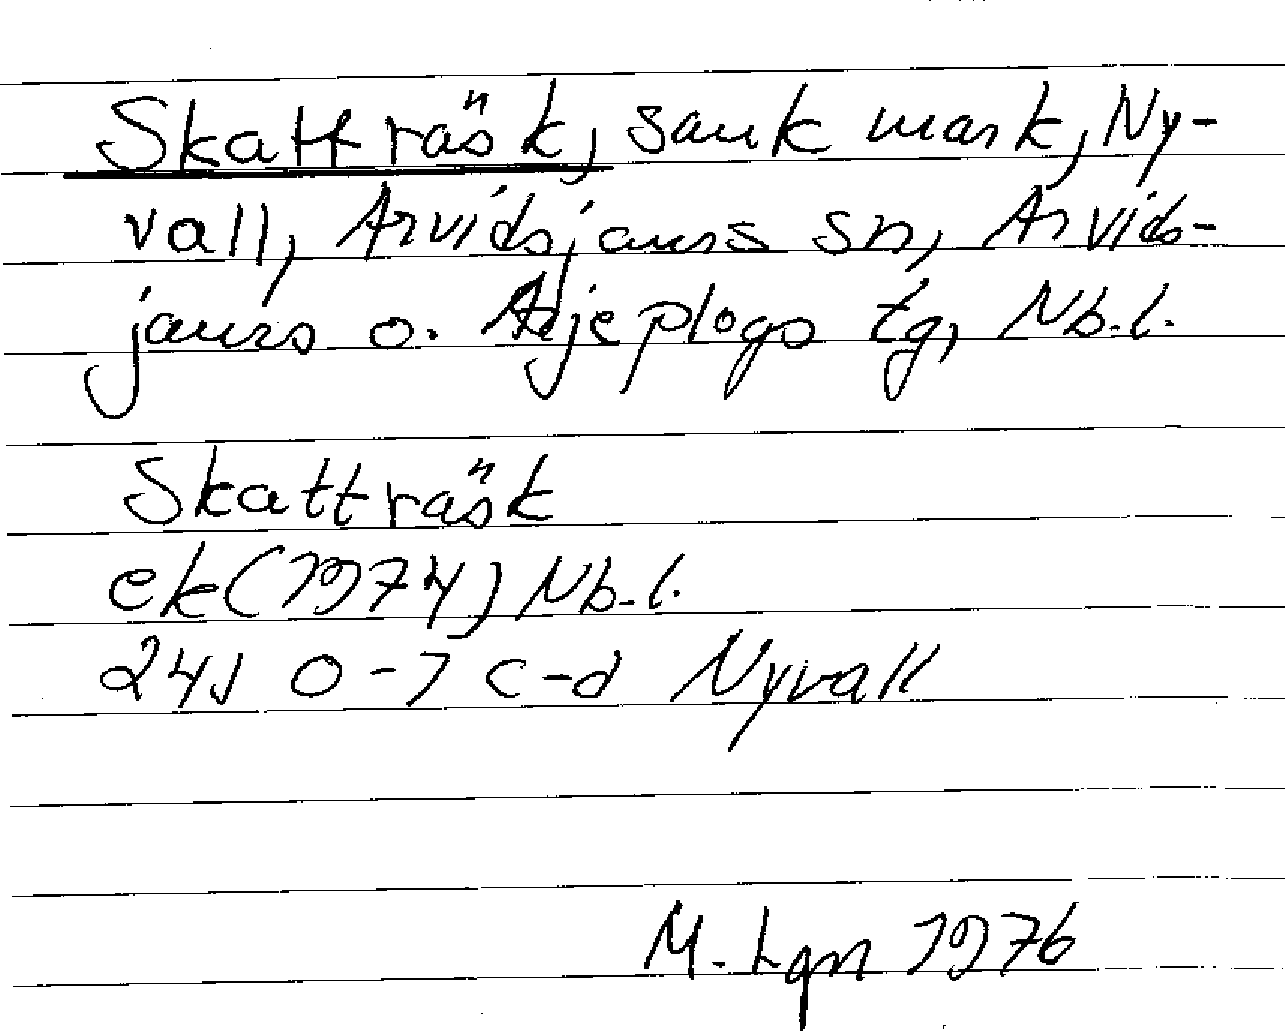 Skatträsk, sank mark, Ny-
vall, Arvidsjaurs sn, Arvids-
jaurs o. Arjeplogs tg, Nb.l.
Skatträsk
ek (1974) Nb.l.
24J 0-1 c-d Nyvall
M. Lgn 1976